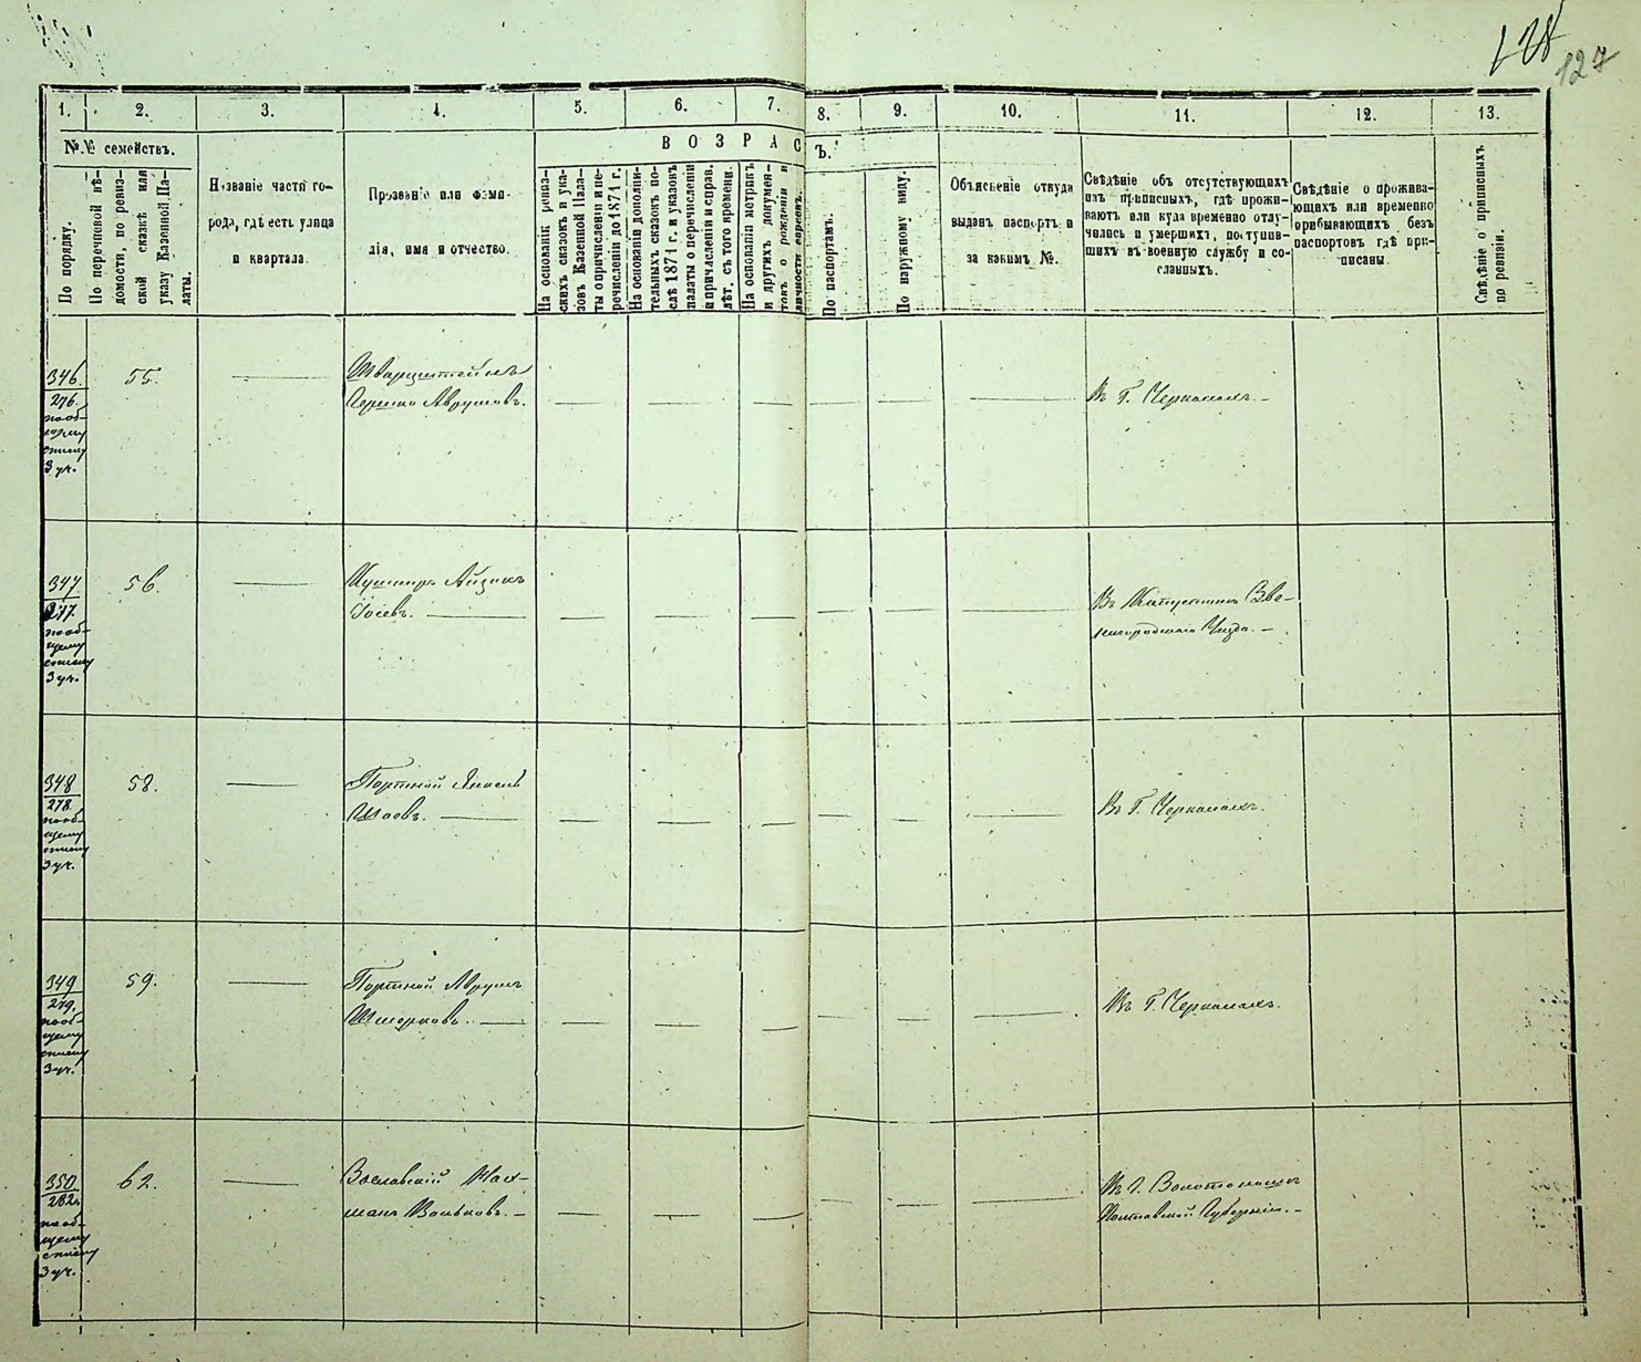 128
127
1.
2.
3.
4.
5.
6.
7.
8.
9.
10.
11.
12.
13.
№№ семействъ.
В О З Р А С
Ъ.
По порядку.
По перечневой вѣ-
домости, по ревиз-
ской сказкѣ или
указу Казенной Па-
латы.
Названіе части го-
рода, гдѣ есть улица
и квартала.
Прозваніе или фами-
лія, имя и отчество.
На основаніи ревиз-
скихъ сказокъ и ука-
зовъ Казенной Пала-
ты о причисленіи и пе-
речисленіи до 1871 г.
На основаніи дополни-
тельныхъ сказокъ по-
слѣ 1871 г. и указовъ
палаты о перечисленіи
и причисленіи и справ.
лѣт. съ того времени.
На основаніи метрикъ
и другихъ докумен-
товъ о рожденіи и
личности евреевъ.
По паспортамъ.
По наружному виду.
Объясненіе откуда
выданъ паспортъ и
за какимъ №.
Свѣдѣніе объ отсутствующихъ
изъ приписныхъ, гдѣ прожи-
ваютъ или куда временно отлу-
чились и умершихъ, поступив-
шихъ въ военную службу и со-
сланныхъ.
Свѣдѣніе о прожива-
ющихъ или временно
прибывающихъ безъ
паспортовъ гдѣ при-
писаны.
Свѣдѣніе о приписныхъ
по ревизіи.
346.
276.
по об-
щему
списку
3 уч.
55.
Шварцштейнъ
Гершко Аврумовъ.
Въ Г. Черкасахъ.
347
277.
по об-
щему
списку
3 уч.
56.
Кушниръ Айзикъ
Іосевъ.
Въ Капустиной Зве-
нигородскаго Уѣзда.
348
278
по об-
щему
списку
3 уч.
58.
Портной Янкель
Шаевъ.
Въ Г. Черкасахъ.
349
279.
по об-
щему
списку
3 уч.
59.
Портной Аврумъ
Шмерковъ.
Въ Г. Черкасахъ.
350
282.
по об-
щему
списку
3 уч.
62.
Богславскій Нах-
манъ Вольковъ.
Въ Г. Золотоношѣ
Полтавской Губерніи.